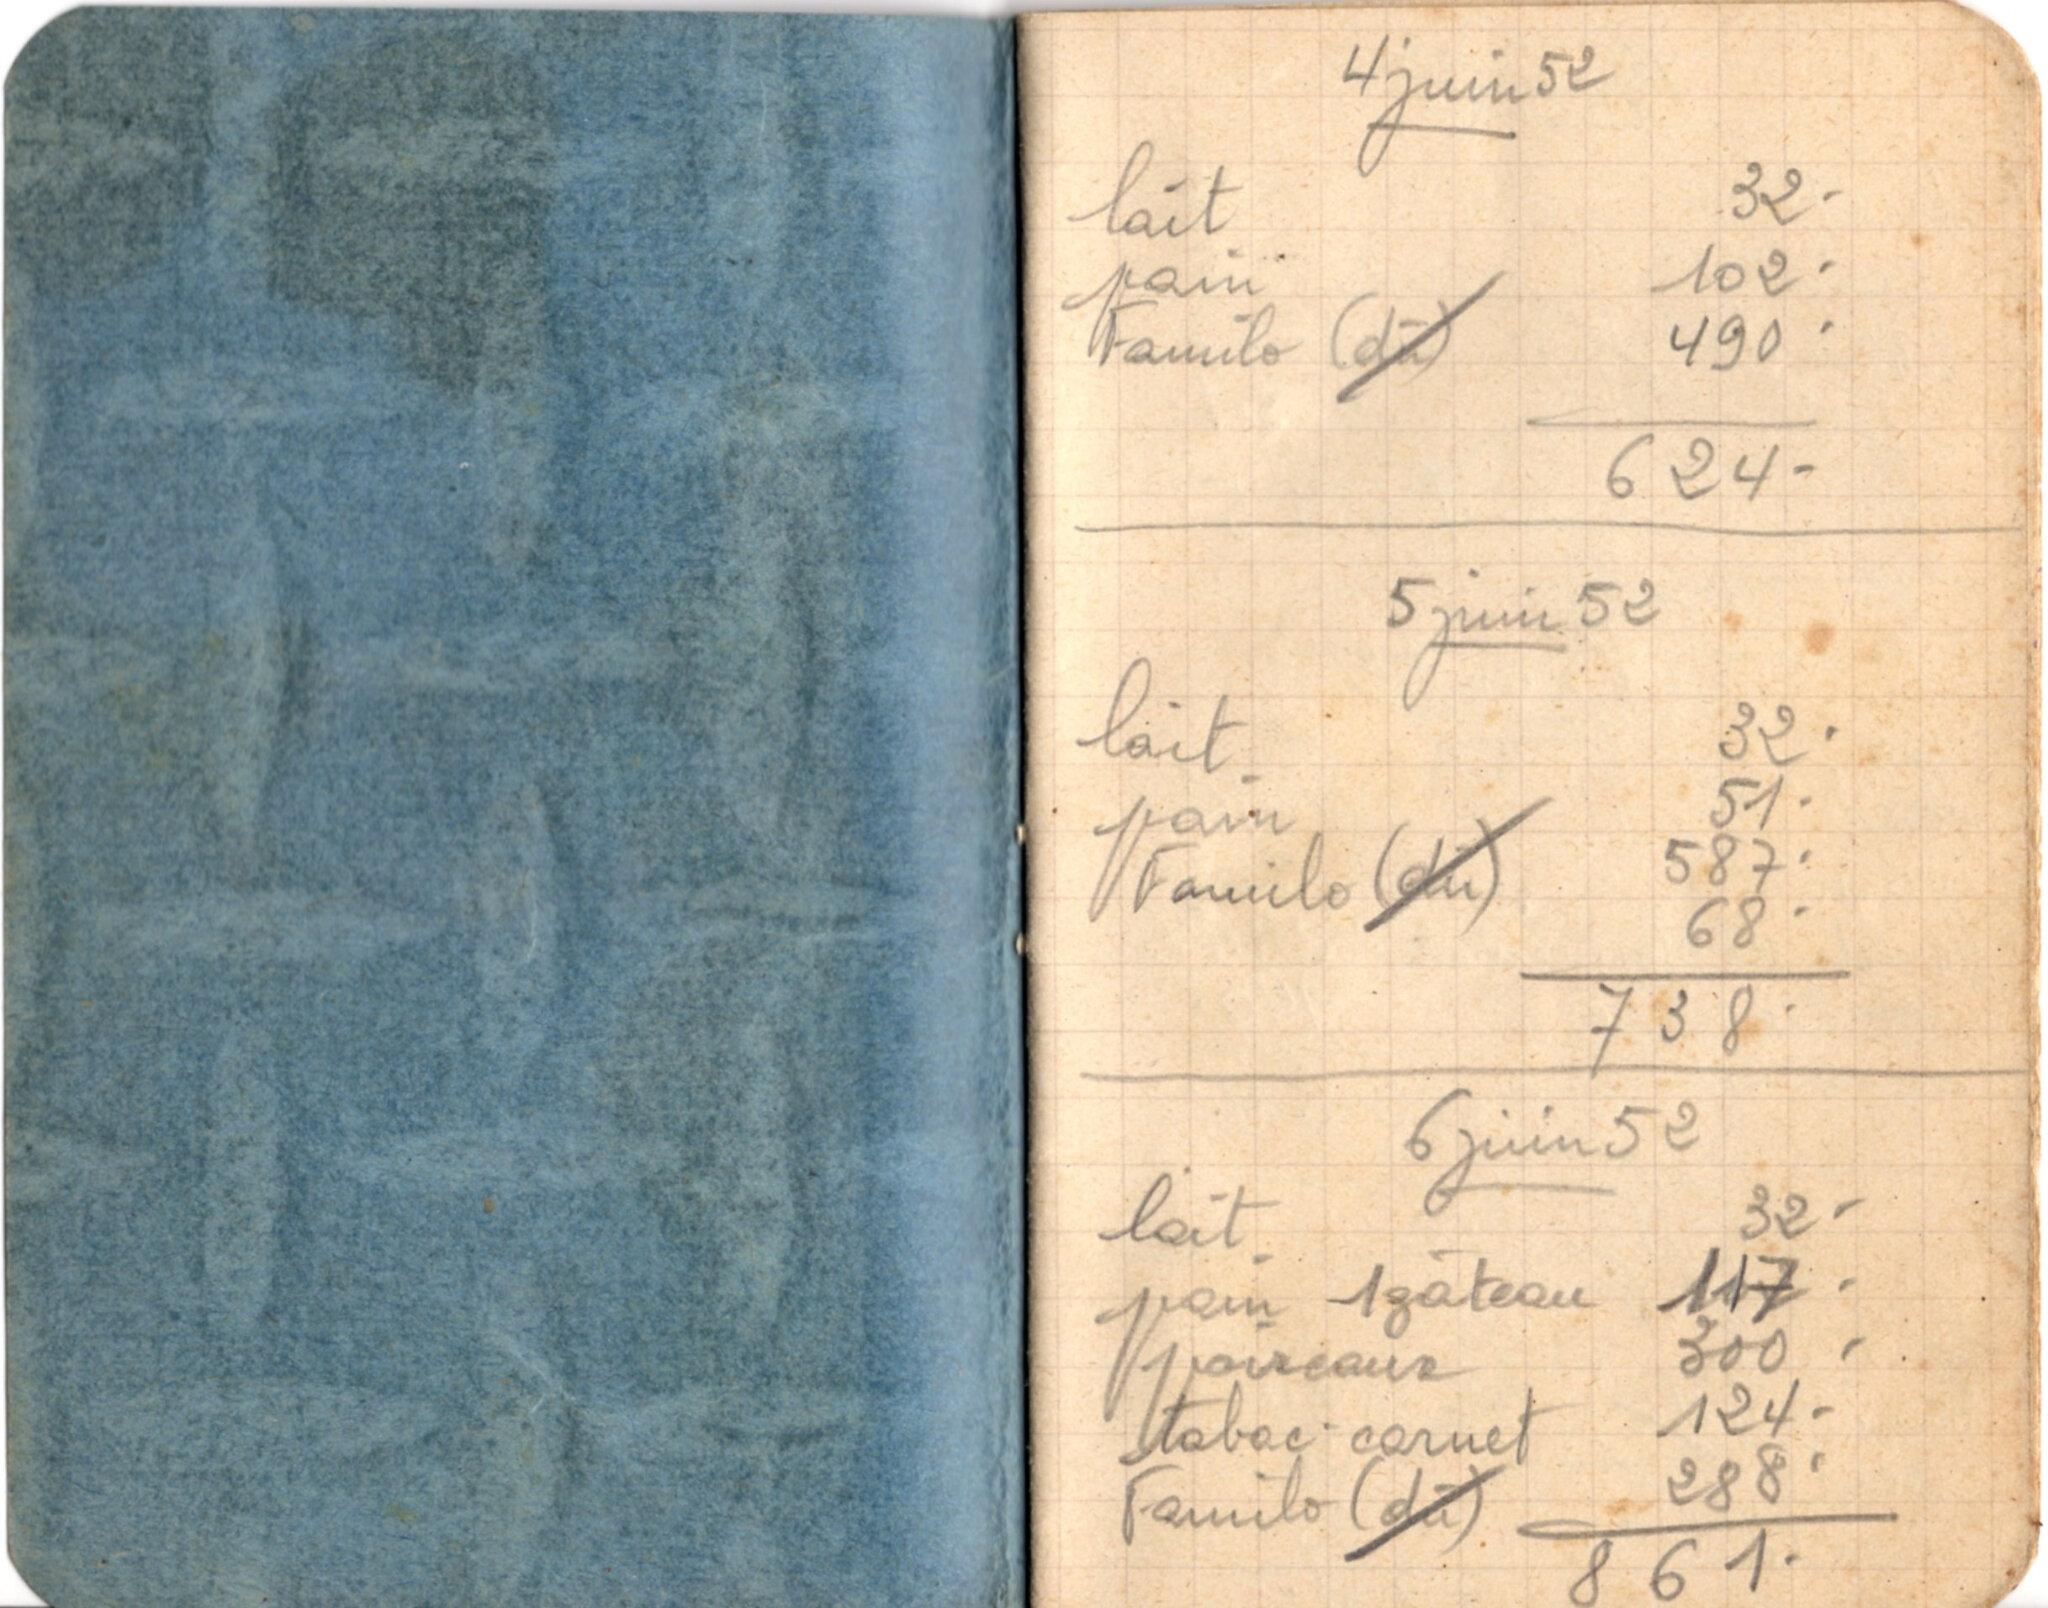 4 juin 52
lait 32.
pain 102.
Familo (dû) 490.
624-
5 juin 52
lait 32.
pain 51.
Familo (dû) 587.
68.
738.
6 juin 52
lait 32-
pain 1 gâteau 117.
poireaux 300.
tabac-carnet 124-
Familo (dû) 288.
861.